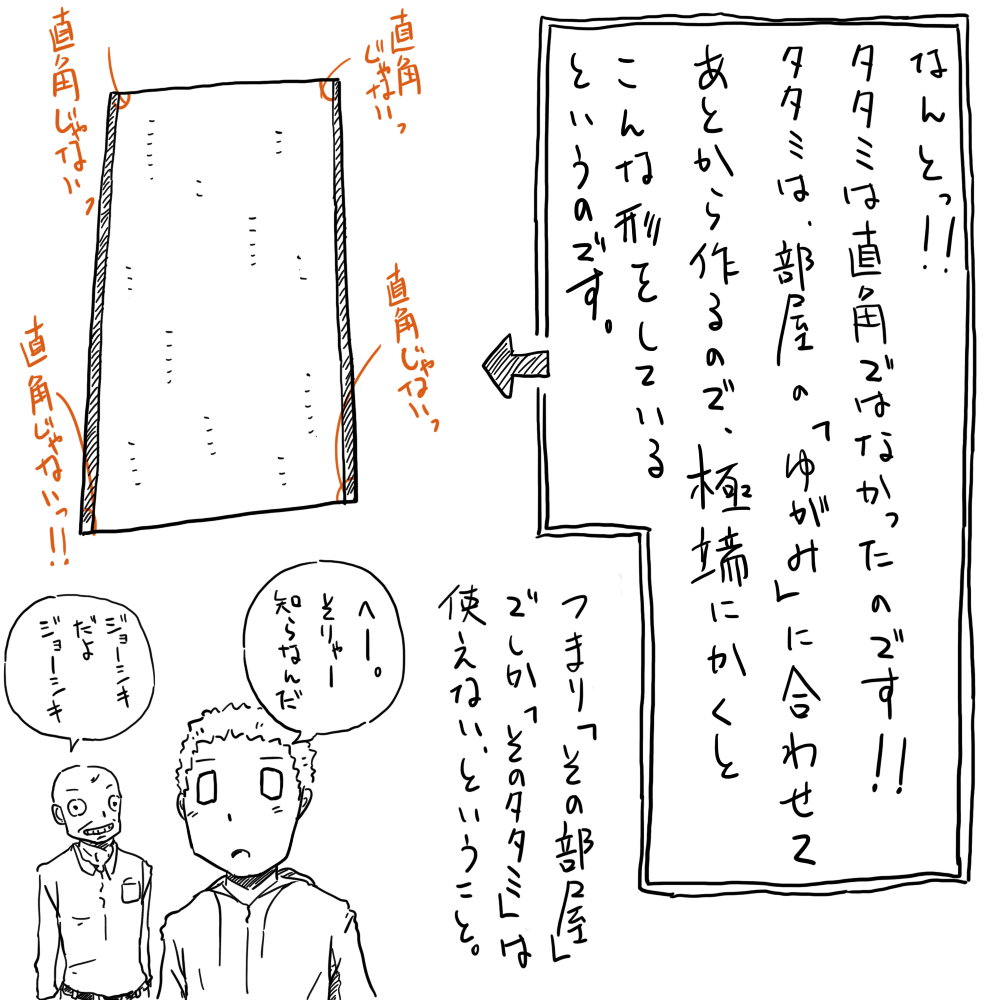 なんとっ!!
タタミは直角ではなかったのです!!
タタミは、部屋の「ゆがみ」に合わせて
あとから作るので、極端にかくと
こんな形をしている
というのです。
直角
じゃないっ
直角じゃないっ
直角じゃないっ
直角じゃないっ!!
つまり「その部屋」
でしか「そのタタミ」は
使えない、ということ。
へー。
そりゃー
知らなんだ
ジョーシキ
だよ
ジョーシキ